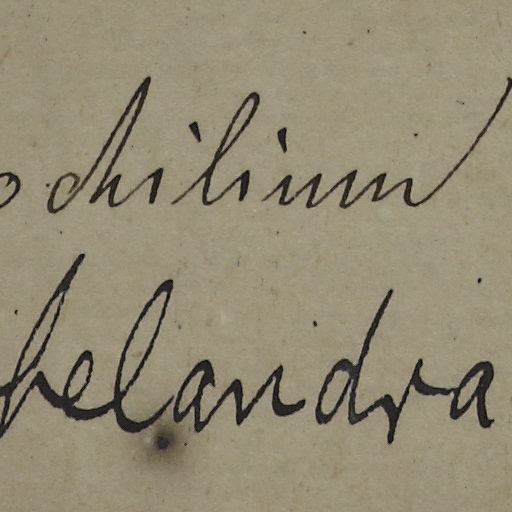 ochilium
helandra